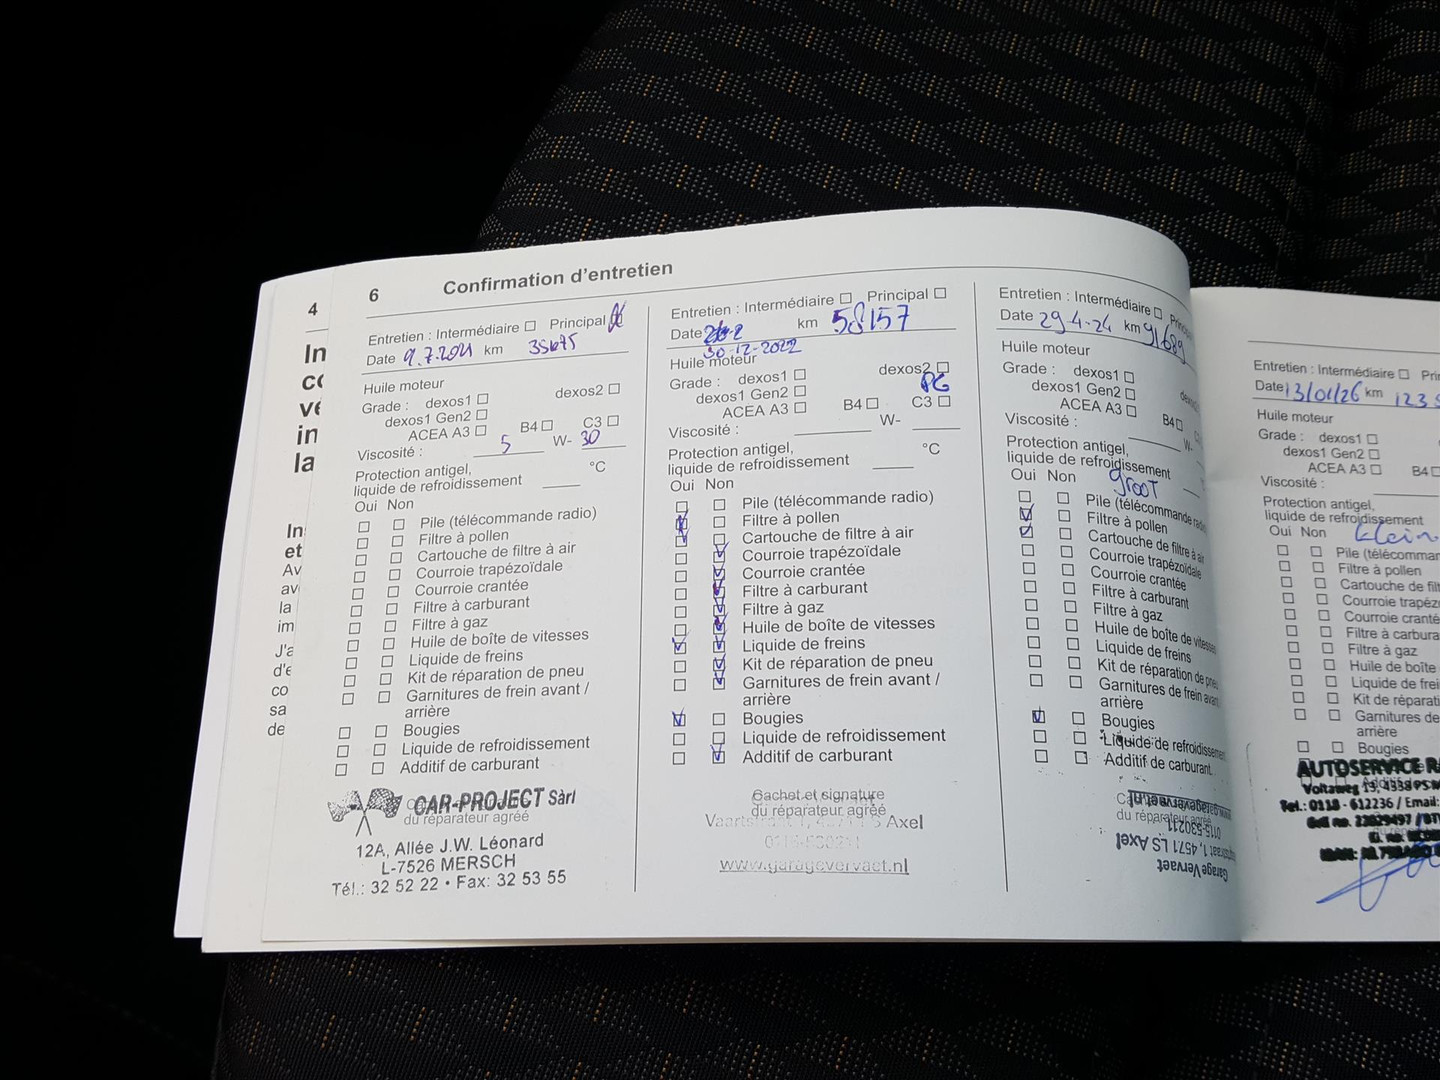 4
In
cc
vé
in
la
In
et
Av
av
la
im
J'a
d'e
co
sa
de
6 Confirmation d'entretien
Entretien : Intermédiaire ☐ Principal
Date 9.7.2021 km
Huile moteur
Grade : dexos1 ☐ dexos2 ☐
dexos1 Gen2 ☐
ACEA A3 ☐ B4 ☐ C3 ☐
Viscosité : 5 W- 30
Protection antigel,
liquide de refroidissement °C
Oui Non
Pile (télécommande radio)
Filtre à pollen
Cartouche de filtre à air
Courroie trapézoïdale
Courroie crantée
Filtre à carburant
Filtre à gaz
Huile de boîte de vitesses
Liquide de freins
Kit de réparation de pneu
Garnitures de frein avant /
arrière
Bougies
Liquide de refroidissement
Additif de carburant
CAR-PROJECT Sàrl
du réparateur agréé
12A, Allée J.W. Léonard
L-7526 MERSCH
Tél.: 32 52 22 • Fax: 32 53 55
Entretien : Intermédiaire ☐ Principal ☐
Date km 58157
30-12-2022
Huile moteur
Grade : dexos1 ☐ dexos2 ☐
dexos1 Gen2 ☐
ACEA A3 ☐ B4 ☐ C3 ☐
Viscosité : W-
Protection antigel,
liquide de refroidissement °C
Oui Non
Pile (télécommande radio)
Filtre à pollen
Cartouche de filtre à air
Courroie trapézoïdale
Courroie crantée
Filtre à carburant
Filtre à gaz
Huile de boîte de vitesses
Liquide de freins
Kit de réparation de pneu
Garnitures de frein avant /
arrière
Bougies
Liquide de refroidissement
Additif de carburant
Cachet et signature
du réparateur agréé
Axel
www.garagevervaet.nl
Entretien : Intermédiaire ☐ Princip
Date 29-4-24 km 91689
Huile moteur
Grade : dexos1 ☐
dexos1 Gen2 ☐
ACEA A3 ☐ B4
Viscosité : W-
Protection antigel,
liquide de refroidissement
Oui Non groot
Pile (télécommande radio
Filtre à pollen
Cartouche de filtre à air
Courroie trapézoïdale
Courroie crantée
Filtre à carburant
Filtre à gaz
Huile de boîte de vitesses
Liquide de freins
Kit de réparation de pneu
Garnitures de frein avant
arrière
Bougies
Liquide de refroidissement
Additif de carburant
du réparateur agréé
www.garagevervaet.nl
0115-530211
1, 4571 LS Axel
Garage Vervaet
Entretien : Intermédiaire ☐ Prin
Date 13/01/26 km 123
Huile moteur
Grade : dexos1 ☐
dexos1 Gen2 ☐
ACEA A3 ☐ B4
Viscosité :
Protection antigel,
liquide de refroidissement
Oui Non klein
Pile (télécomma
Filtre à pollen
Cartouche de filt
Courroie trapézo
Courroie cranté
Filtre à carbura
Filtre à gaz
Huile de boîte
Liquide de frei
Kit de réparati
Garnitures de
arrière
Bougies
AUTOSERVICE R
Voltaweg 13, 4338 PS M
Tel.: 0118 - 612236 / Email: